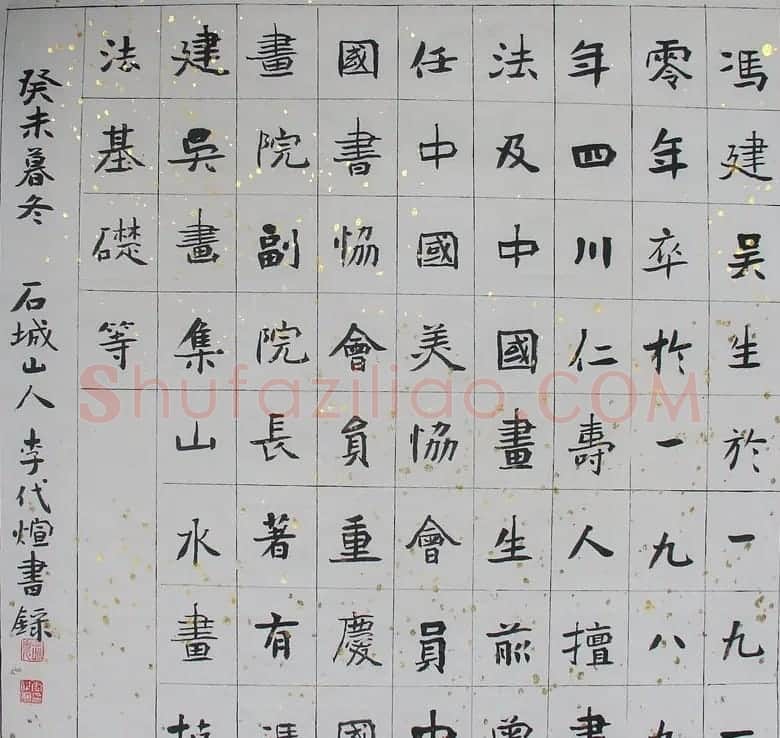 馮建吴生於一九一
零年卒於一九八九
年四川仁壽人擅書
法及中國畫生前曾
任中國美協會員中
國書協會員重慶國
畫院副院長著有馮
建吳畫集山水畫技
法基礎等
癸未暮冬 石城山人 李代煊書錄
Shufaziliao.COM